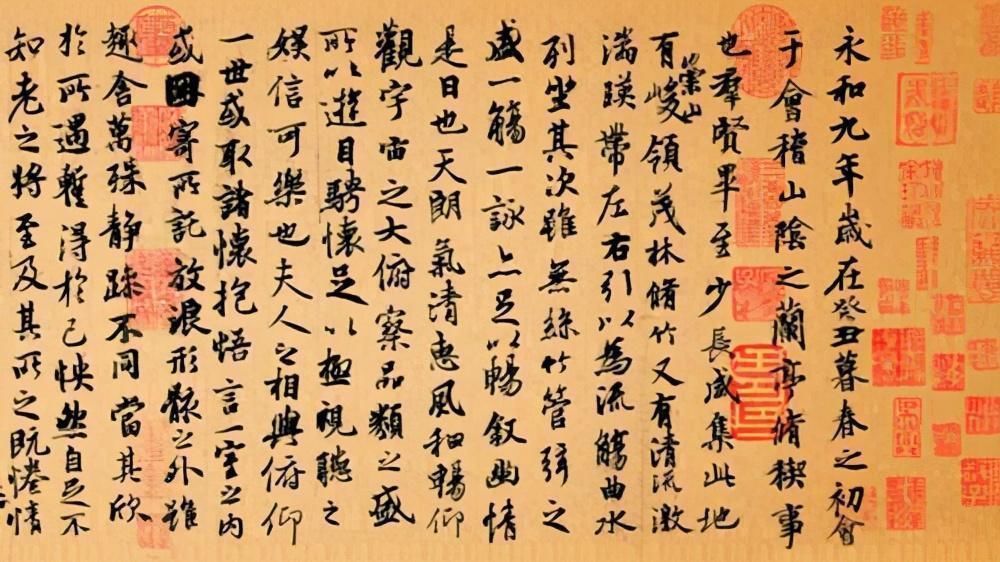 永和九年歲在癸丑暮春之初會
于會稽山陰之蘭亭脩稧事
也羣賢畢至少長咸集此地
有崇山峻領茂林脩竹又有清流激
湍暎帶左右引以為流觴曲水
列坐其次雖無絲竹管弦之
盛一觴一詠亦足以暢敘幽情
是日也天朗氣清惠風和暢仰
觀宇宙之大俯察品類之盛
所以遊目騁懷足以極視聽之
娛信可樂也夫人之相與俯仰
一世或取諸懷抱悟言一室之內
或因寄所託放浪形骸之外雖
趣舍萬殊靜躁不同當其欣
於所遇暫得於己怏然自足不
知老之將至及其所之既惓情